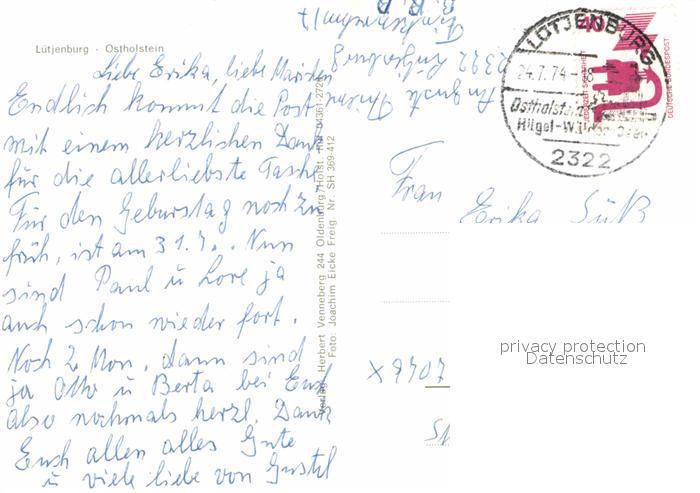 Lütjenburg · Ostholstein
Liebe Erika, liebe
Endlich kommt die Post
mit einem herzlichen Dank
für die allerliebste Tasche
Für den Geburtstag noch zu
früh, ist am 31.7.. Nun
sind Paul u Lore ja
auch schon wieder fort.
Noch 2 Mon. dann sind
ja Otto u Berta bei Euch
Also nochmals herzl. Dank
Euch allen alles Gute
u viele liebe von Gustel
Verlag Herbert Venneberg 244 Oldenburg/Holst Ruf 04361-272
Foto: Joachim Eicke Freig. Nr. SH 369-412
2322
B. R. D
LÜTJENBURG
24.7.74-18
2322
40
DEUTSCHE BUNDESPOST
Frau
Erika Süß
X 9407
privacy protection
Datenschutz